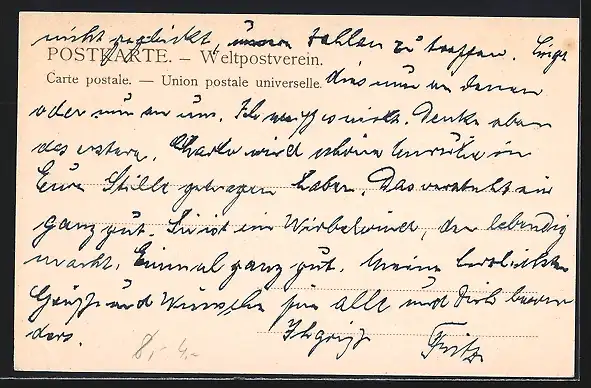 nicht geglückt, unsern Zahlen zu treffen. Liegt
POSTKARTE. – Weltpostverein.
Carte postale. — Union postale universelle. dies nun an denen
oder nun an uns. Ich weiß es nicht. Denke aber
das erstere. Charlo wird schöne Unruhe in
Eure Stille getragen haben. Das versteht sie
ganz gut. Sie ist ein Wirbelwind, der lebendig
macht. Einmal ganz gut. Meine herzlichsten
Grüße und Wünsche für alle und Dich beson
ders. Ihr Fritz
8,- 4.-